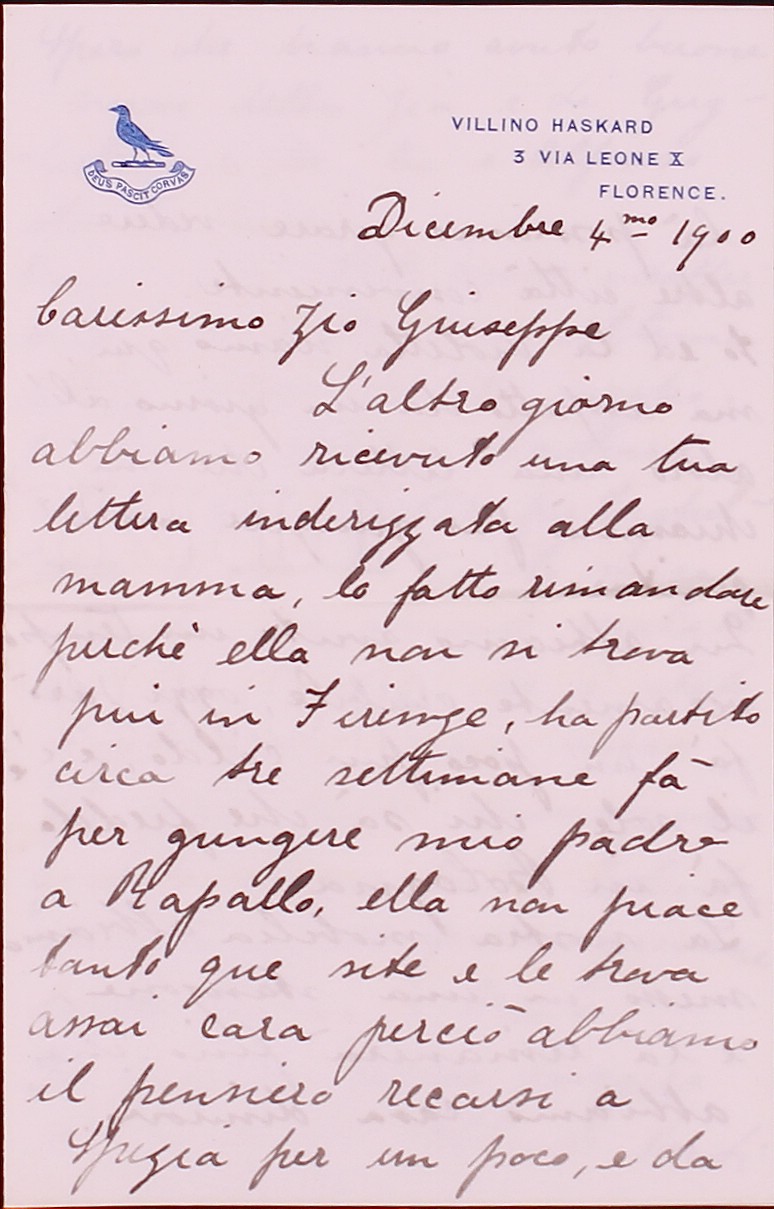 DEUS PASCIT CORVAS
VILLINO HASKARD
3 VIA LEONE X
FLORENCE.
Dicembre 4mo 1900
Carissimo Zio Giuseppe
L'altro giorno
abbiamo ricevuto una tua
lettera inderizzata alla
mamma, lo fatto rimandare
perchè ella non si trova
pui in Firenze, ha partito
circa tre settimane fà
per gungere mio padre
a Rapallo, ella non piace
tanto que site e le trova
assai cara perciò abbiamo
il pensiero recarsi a
Spezia per un poco, e da